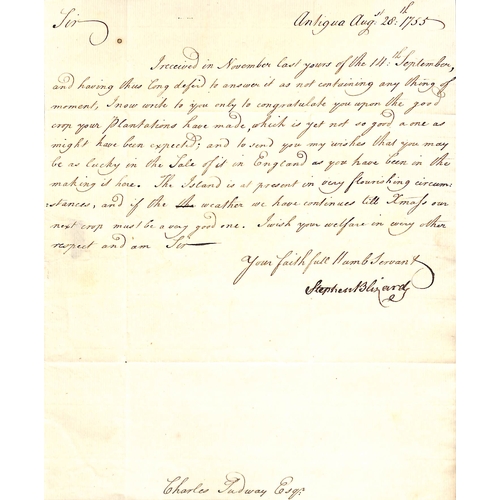 Sir Antigua Augst 28:th 1755
I received in November last yours of the 14:th September,
and having thus long defer'd to answer it as not containing any thing of
moment, I now write to you only to congratulate you upon the good
crop your Plantations have made, which is yet not so good a one as
might have been expected; and to send you my wishes that you may
be as lucky in the Sale of it in England as you have been in the
making it here. The Island is at present in very flourishing circum-
stances, and if the weather we have continues till Xmass our
next crop must be a very good one. I wish your welfare in every other
respect and am Sir
Your faithfull Humb Servant
Stephen Blizard
Charles Tudway Esqr